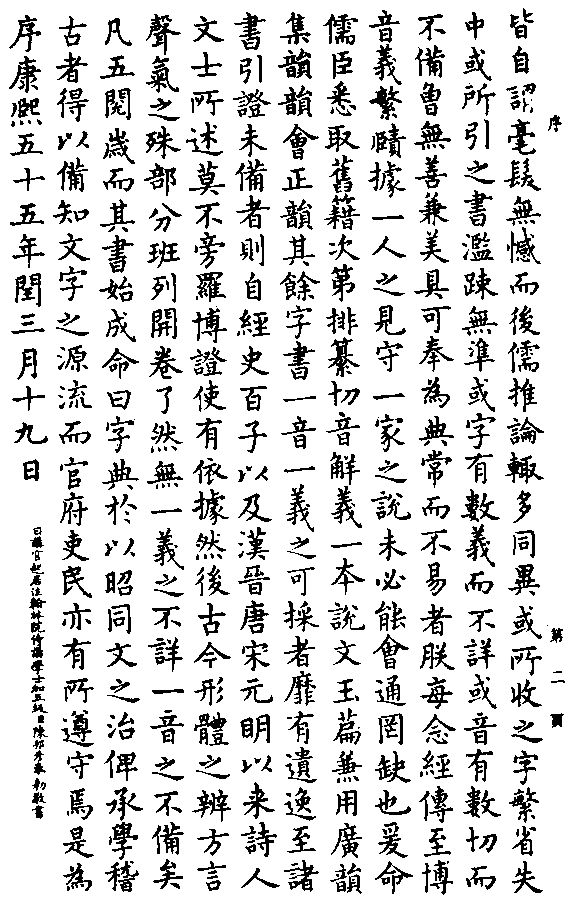 序
第二頁
皆自謂毫髮無憾而後儒推論輒多同異或所收之字繁省失
中或所引之書濫踈無準或字有數義而不詳或音有數切而
不備曾無善兼美具可奉為典常而不易者朕每念經傳至博
音義繁賾據一人之見守一家之說未必能會通罔缺也爰命
儒臣悉取舊籍次第排纂切音解義一本說文玉篇兼用廣韻
集韻韻會正韻其餘字書一音一義之可採者靡有遺逸至諸
書引證未備者則自經史百子以及漢晉唐宋元明以來詩人
文士所述莫不旁羅博證使有依據然後古今形體之辨方言
聲氣之殊部分班列開卷了然無一義之不詳一音之不備矣
凡五閱歲而其書始成命曰字典於以昭同文之治俾承學稽
古者得以備知文字之源流而官府吏民亦有所遵守焉是為
序康熙五十五年閏三月十九日
日講官起居注翰林院侍講學士加五級臣陳邦彥奉勑敬書